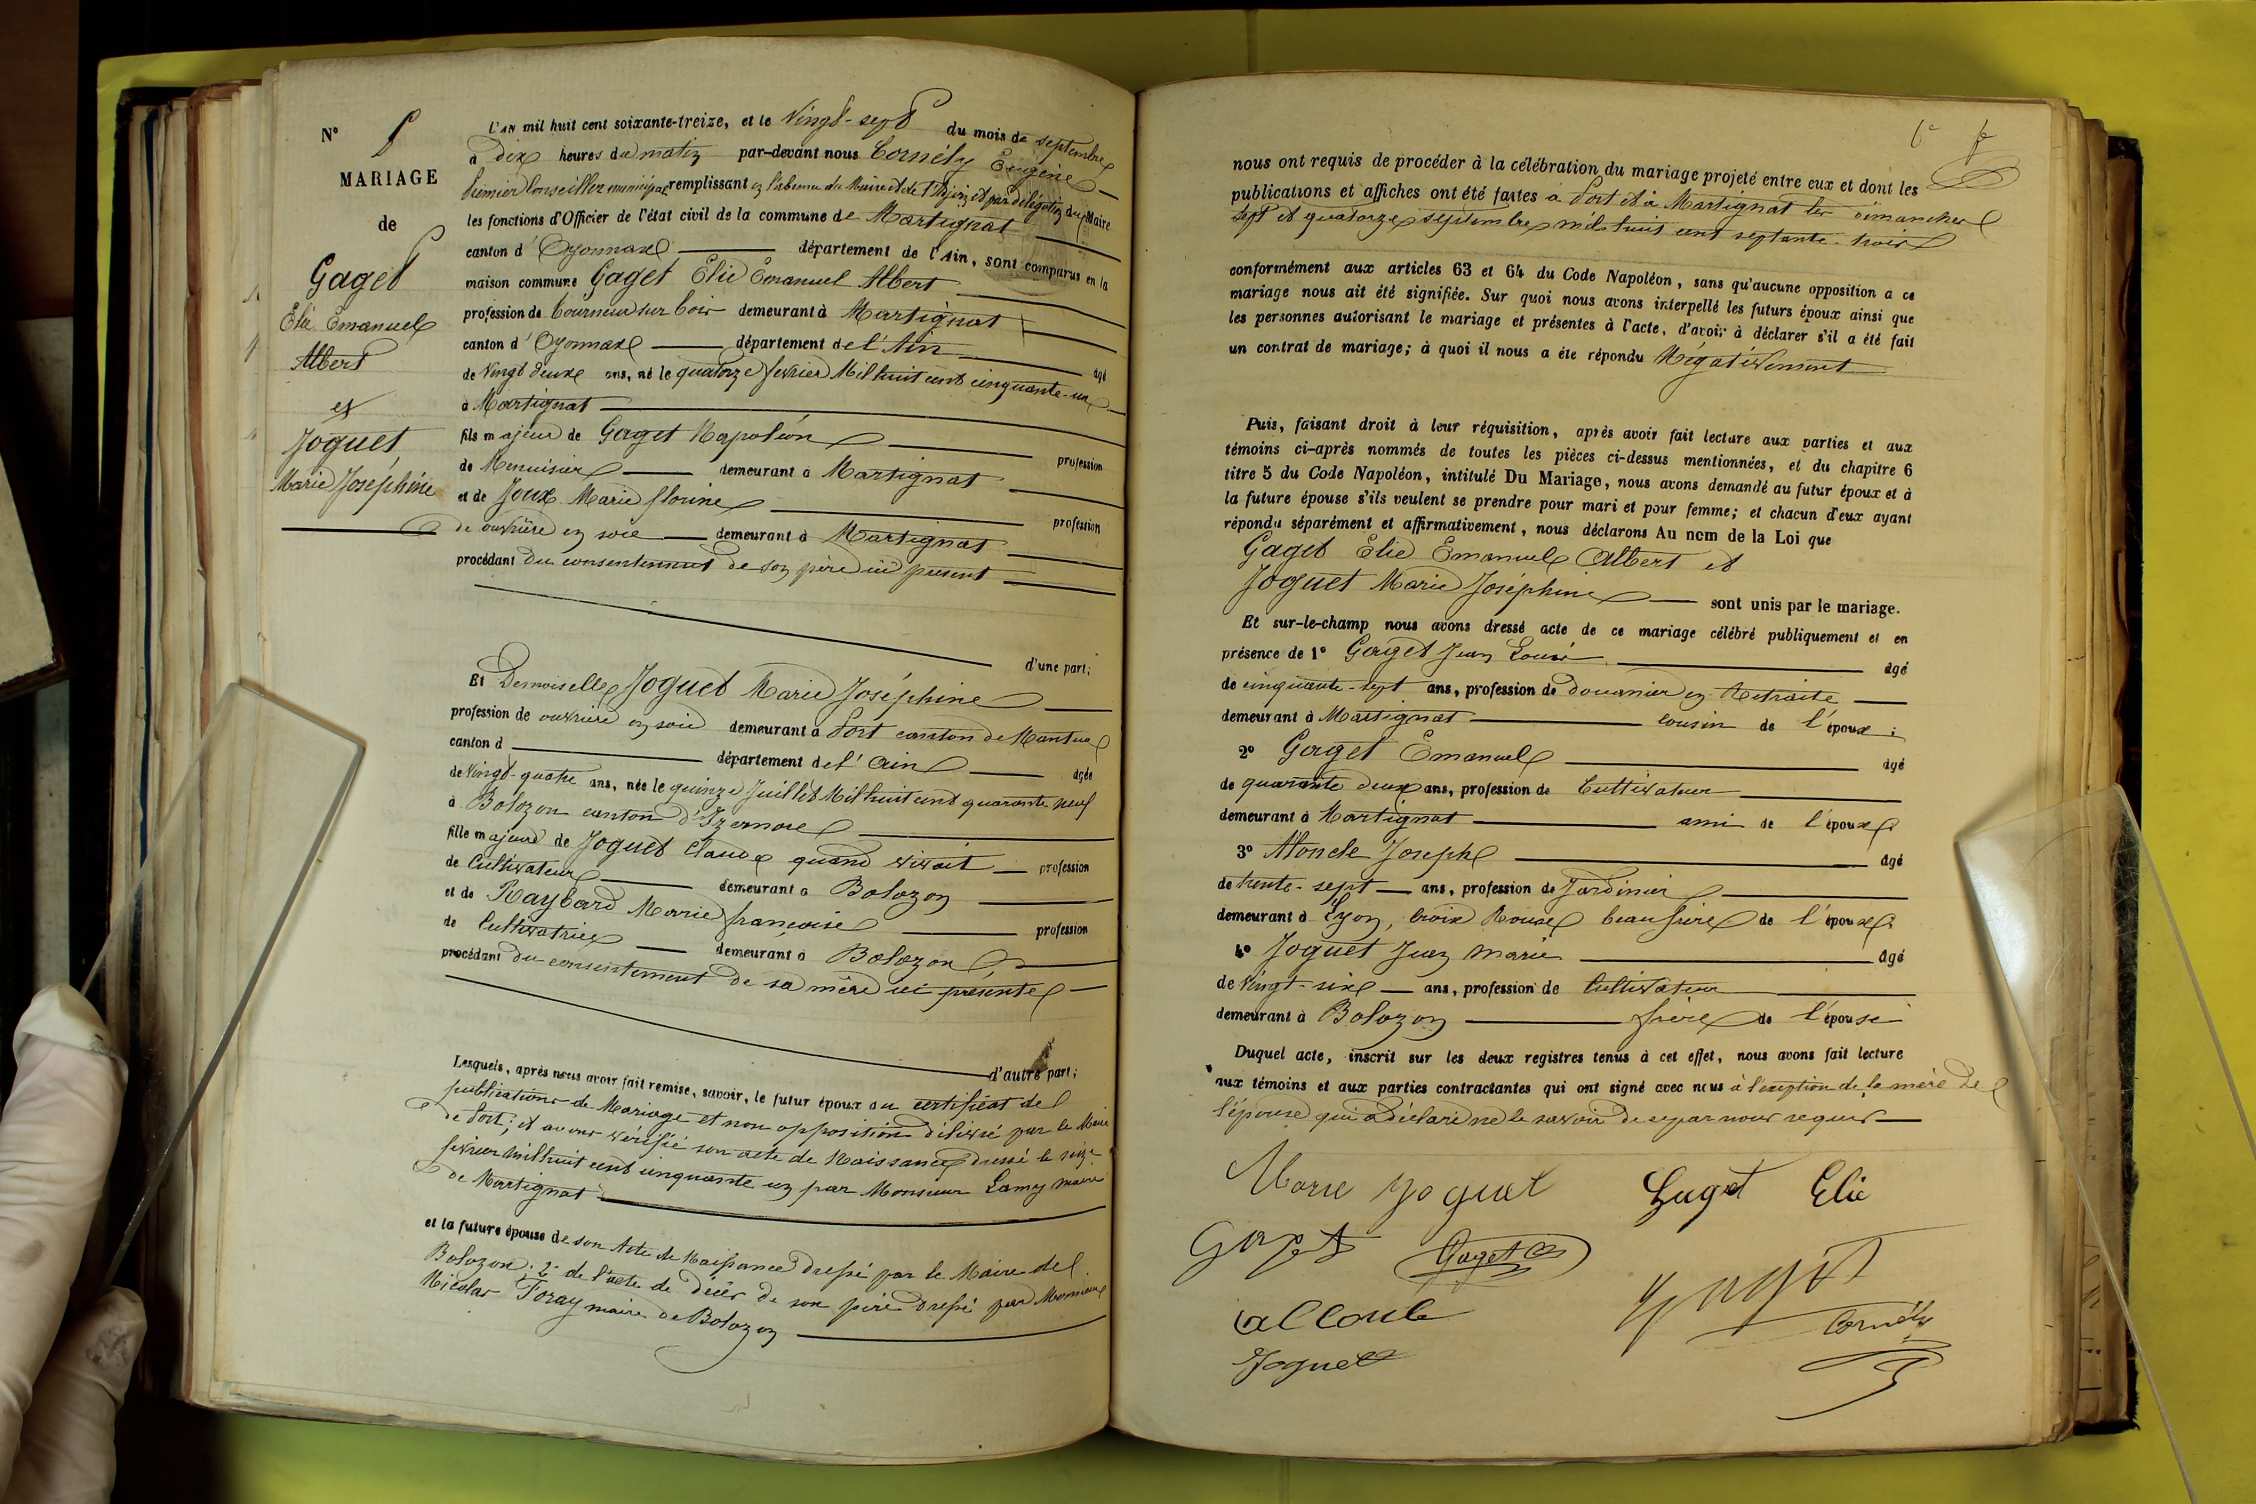 N°
MARIAGE
de
Gaget
Elie Emanuel
Albert
et
Joguet,
Marie Joséphine
L'AN mil huit cent soixante-treize, et le Vingt-sept du mois de septembre
à Dix heures du matin par-devant nous Cornély Eugène
Premier Conseiller municipal remplissant en l'absence du Maire et de l'Adjoint et par délégation du Maire
les fonctions d'Officier de l'état civil de la commune de Martignat
canton d'Oyonnax département de l'Ain, sont comparus en la
maison commune Gaget Elie Emanuel Albert
profession de tourneur sur bois demeurant à Martignat
canton d'Oyonnax département de l'Ain âgé
de Vingt deux ans, né le quatorze fevrier Mil huit cent cinquante-un
à Martignat
fils majeur de Gaget Napoléon profession
de Menuisier demeurant à Martignat
et de Joux Marie florine profession
de ouvrière en soie demeurant à Martignat
procédant du consentement de son père ici présent
d'une part;
Et Demoiselle Joguet Marie Joséphine
profession de ouvrière en soie demeurant à Port canton de Nantua
canton d département de l'Ain âgée
de Vingt-quatre ans, née le quinze Juillet Mil huit cent quarante neuf
à Bolozon canton d'Izernore
fille majeure de Joguet Claude quand vivait profession
de Cultivateur demeurant à Bolozon
et de Raybard Marie françoise profession
de Cultivatrice demeurant à Bolozon
procédant du consentement de sa mère ici présente
d'autre part;
Lesquels, après nous avoir fait remise, savoir, le futur époux du certificat de
publications de Mariage et non opposition délivré par le Maire
de Port; et avons vérifié son acte de Naissance dressé le seize
fevrier Mil huit cent cinquante un par Monsieur Lamy maire
de Martignat
et la future épouse de son Acte de Naissance dressé par le Maire de
Bolozon; 2° de l'acte de décès de son père dressé par Monsieur
Nicolas Foray maire de Bolozon
nous ont requis de procéder à la célébration du mariage projeté entre eux et dont les
publications et affiches ont été faites à Port et à Martignat les dimanches
sept et quatorze septembre mil huit cent septante-trois
conformément aux articles 63 et 64 du Code Napoléon, sans qu'aucune opposition a ce
mariage nous ait été signifiée. Sur quoi nous avons interpellé les futurs époux ainsi que
les personnes autorisant le mariage et présentes à l'acte, d'avoir à déclarer s'il a été fait
un contrat de mariage; à quoi il nous a éte répondu Négativement
Puis, faisant droit à leur réquisition, après avoir fait lecture aux parties et aux
témoins ci-après nommés de toutes les pièces ci-dessus mentionnées, et du chapitre 6
titre 5 du Code Napoléon, intitulé Du Mariage, nous avons demandé au futur époux et à
la future épouse s'ils veulent se prendre pour mari et pour femme; et chacun d'eux ayant
répondu séparément et affirmativement, nous déclarons Au nom de la Loi que
Gaget Elie Emanuel Albert et
Joguet Marie Joséphine sont unis par le mariage.
Et sur-le-champ nous avons dressé acte de ce mariage célébré publiquement et en
présence de 1° Gaget Jean Louis âgé
de cinquante-sept ans, profession de douanier en Retraite
demeurant à Martignat cousin de l'époux;
2° Gaget Emanuel âgé
de quarante deux ans, profession de Cultivateur
demeurant à Martignat ami de l'époux;
3° Aloncle Joseph âgé
de trente-sept ans, profession de Jardinier
demeurant à Lyon, Croix Rousse beau frère de l'époux;
4° Joguet Jean marie âgé
de Vingt-six ans, profession de Cultivateur
demeurant à Bolozon frère de l'épouse
Duquel acte, inscrit sur les deux registres tenus à cet effet, nous avons fait lecture
aux témoins et aux parties contractantes qui ont signé avec nous à l'exception de la mère de
l'épouse qui a déclaré ne le savoir de ce par nous requis
Marie Joguet Gaget Elie
Gaget Gaget
Joguet
Cornély